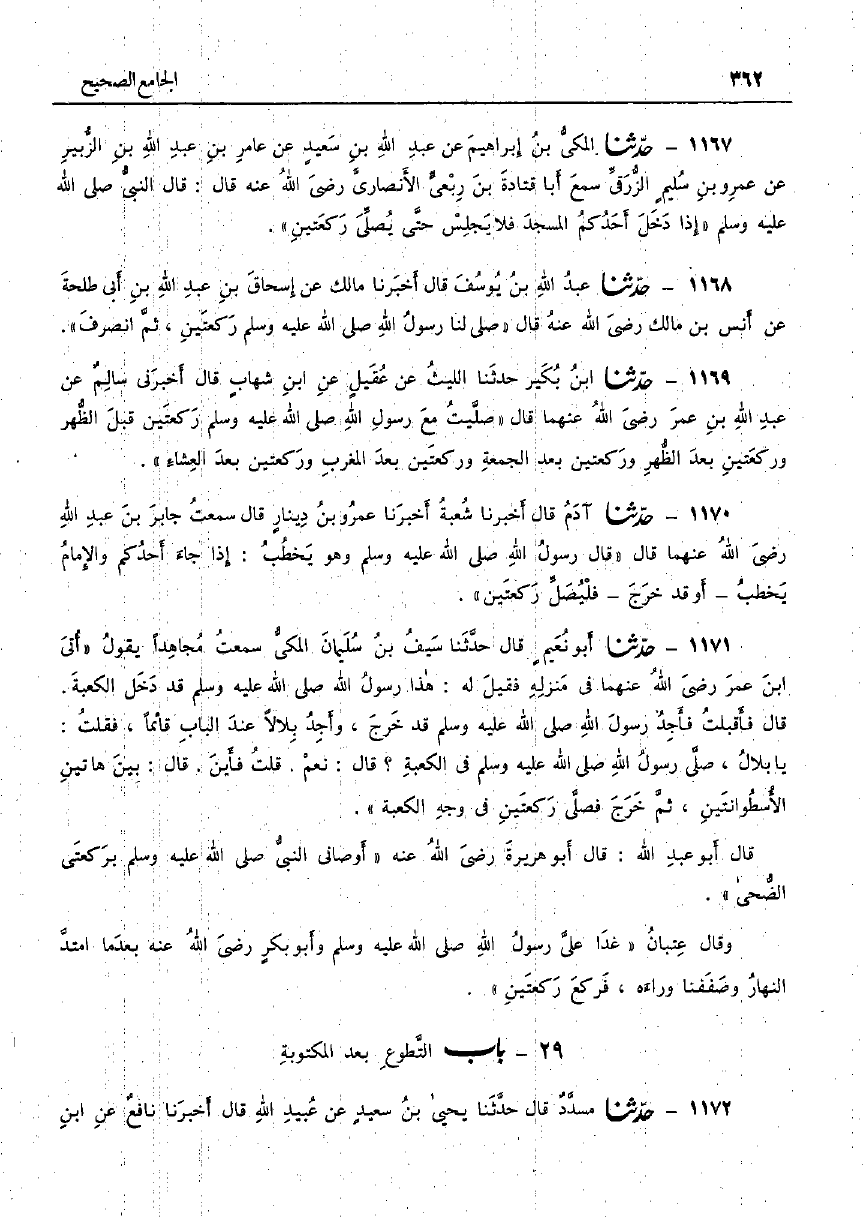 ٣٦٢
الجامع الصحيح
١١٦٧ – حدّثنا المكىُّ بنُ إبراهيمَ عن عبدِ اللهِ بنِ سَعيدٍ عن عامرِ بنِ عبدِ اللهِ بنِ الزُّبيرِ
عن عمرِو بنِ سُليمٍ الزُّرَقىِّ سمعَ أبا قتادةَ بنَ رِبْعىٍّ الأنصارىَّ رضىَ اللهُ عنه قال : قال النبىُّ صلى الله
عليه وسلم «إذا دَخَلَ أحَدُكمُ المسجدَ فلا يَجلِسْ حتَّى يُصلِّىَ رَكعَتينِ» .
١١٦٨ – حدّثنا عبدُ اللهِ بنُ يُوسُفَ قال أخبَرنا مالك عن إسحاقَ بنِ عبدِ اللهِ بنِ أبى طلحةَ
عن أنَسِ بنِ مالك رضىَ الله عنهُ قال «صلى لنا رسولُ اللهِ صلى الله عليه وسلم رَكعتَينِ ، ثمَّ انصرفَ» .
١١٦٩ – حدّثنا ابنُ بُكَيرٍ حدثَنا الليثُ عن عُقَيلٍ عنِ ابنِ شهابٍ قال أخبرَنى سالِمٌ عن
عبدِ اللهِ بنِ عمرَ رضىَ اللهُ عنهما قال «صلَّيتُ معَ رسولِ اللهِ صلى الله عليه وسلم رَكعتَين قبلَ الظُّهر
وركعَتينِ بعدَ الظُّهرِ ورَكعتين بعد الجمعةِ وركعتَين بعدَ المغربِ ورَكعتين بعدَ العِشاءِ » .
١١٧٠ – حدّثنا آدَمُ قال أخبرنا شُعبةُ أخبرَنا عمرُو بنُ دِينارٍ قال سمعتُ جابرَ بنَ عبدِ اللهِ
رضىَ اللهُ عنهما قال «قال رسولُ اللهِ صلى الله عليه وسلم وهو يَخطُبُ : إذا جاءَ أحدُكم والإمامُ
يَخطبُ – أو قد خرَجَ – فلْيُصَلِّ رَكعتَين» .
١١٧١ – حدّثنا أبو نُعَيمٍ قال حدَّثَنا سَيفُ بنُ سُلَيمانَ المكىُّ سمعتُ مُجاهِداً يقولُ «أُتىَ
ابنَ عمرَ رضىَ اللهُ عنهما فى مَنزلِهِ فقيلَ له : هٰذا رسولُ الله صلى الله عليه وسلم قد دَخَل الكعبةَ .
قال فأقبلتُ فأجِدُ رسولَ اللهِ صلى الله عليه وسلم قد خَرجَ ، وأجِدُ بِلالاً عندَ البابِ قائماً ، فقلتُ :
يا بلالُ ، صلَّى رسولُ اللهِ صلى الله عليه وسلم فى الكعبةِ ؟ قال : نعمْ . قلتُ فأينَ . قال : بينَ هاتينِ
الأُسطُوانتَينِ ، ثمَّ خَرَجَ فصلَّى رَكعتَينِ فى وجهِ الكعبة » .
قال أبو عبدِ الله : قال أبو هريرةَ رضىَ اللهُ عنه « أوصانى النبىُّ صلى الله عليه وسلم برَكعتَى
الضُّحىٰ » .
وقال عِتبانُ « غدَا علىَّ رسولُ اللهِ صلى الله عليه وسلم وأبو بكرٍ رضىَ اللهُ عنه بعدَما امتدَّ
النهارُ وصَففنا وراءه ، فَركعَ رَكعتَينِ » .
٢٩ – باب التَّطوعِ بعد المكتوبةِ
١١٧٢ – حدّثنا مسدَّدٌ قال حدَّثَنا يحيىٰ بنُ سعيدٍ عن عُبيدِ اللهِ قال أخبرَنا نافعٌ عنِ ابنِ